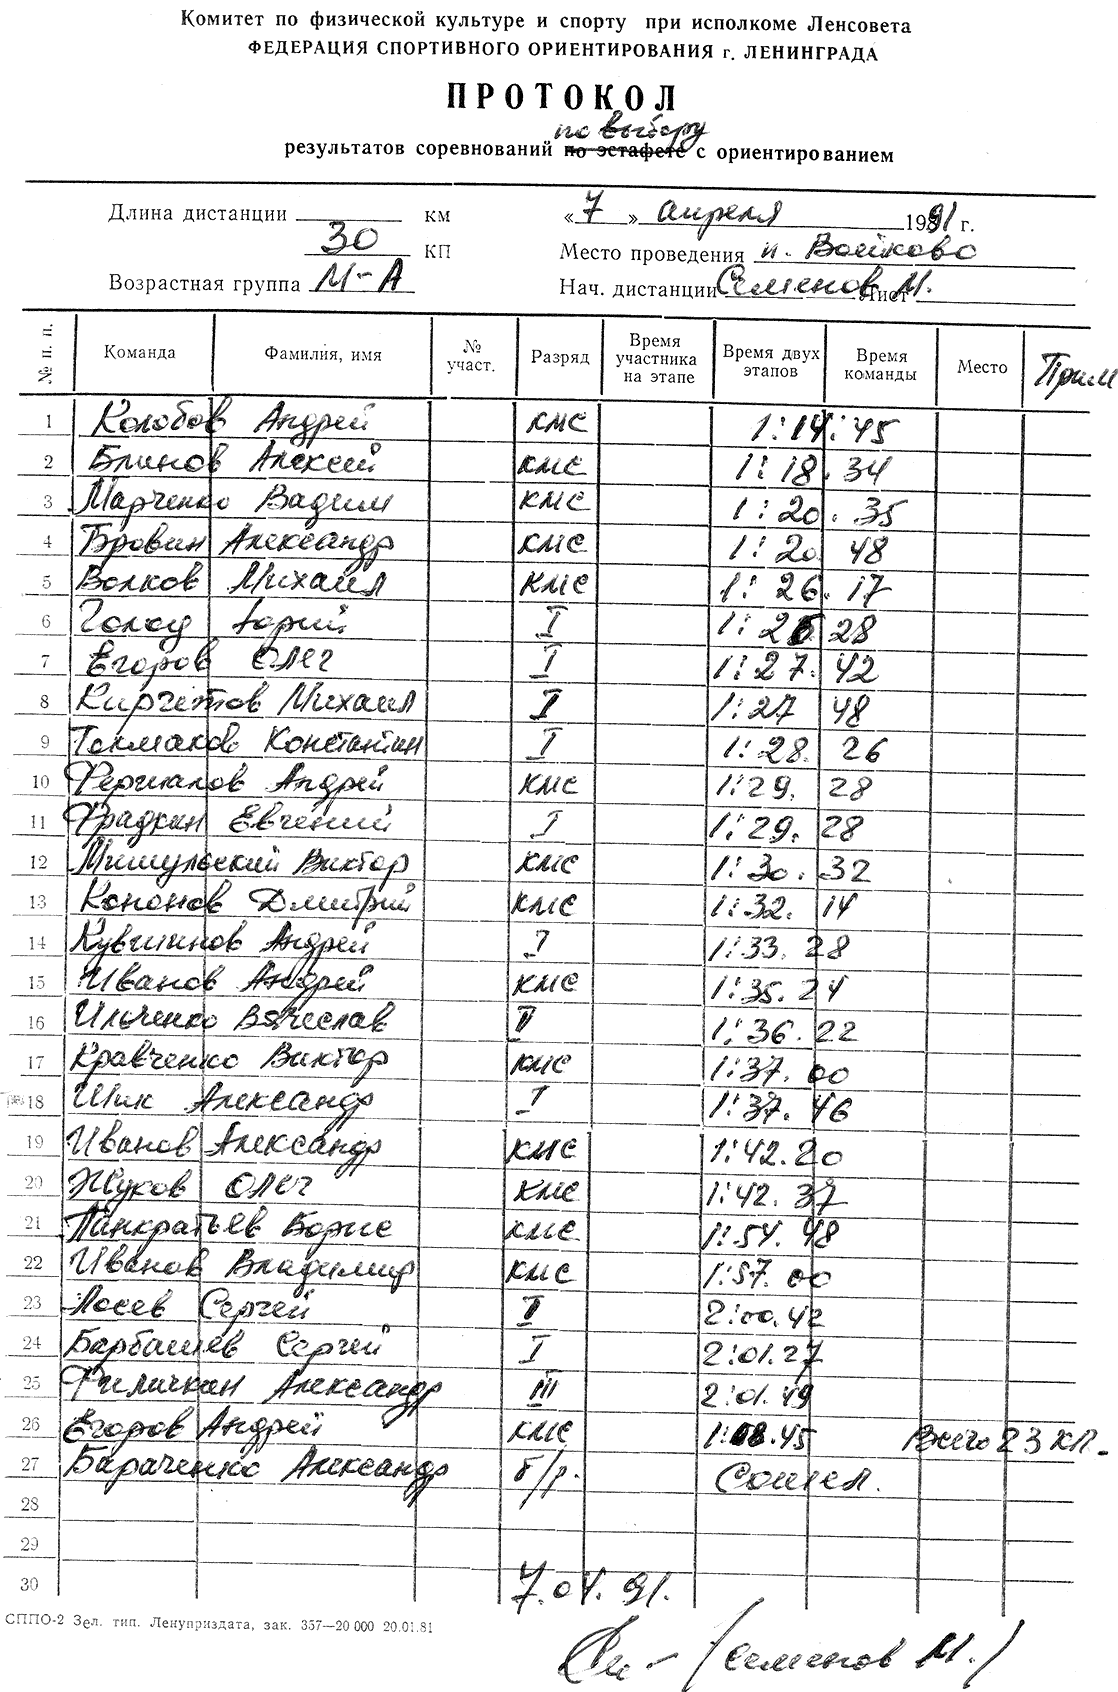 Комитет по физической культуре и спорту при исполкоме Ленсовета
ФЕДЕРАЦИЯ СПОРТИВНОГО ОРИЕНТИРОВАНИЯ г. ЛЕНИНГРАДА
ПРОТОКОЛ
по выбору
результатов соревнований по эстафете с ориентированием
Длина дистанции км «7» апреля 1991 г.
30 КП Место проведения п. Войково
Возрастная группа М-А Нач. дистанции Семенов М. Лист
№ п. п. Команда Фамилия, имя № участ. Разряд Время участника на этапе Время двух этапов Время команды Место Прим
1 Колобов Андрей кмс 1:14:45
2 Блинов Алексей кмс 1:18.34
3 Марченко Вадим кмс 1:20.35
4 Бровин Александр кмс 1:20 48
5 Волков Михаил кмс 1:26.17
6 Голод Юрий I 1:26 28
7 Егоров Олег I 1:27.42
8 Михаил II 1:27 48
9 Токмаков Константин I 1:28. 26
10 Андрей кмс 1:29. 28
11 Фрадкин Евгений I 1:29. 28
12 Мишульский Виктор кмс 1:30. 32
13 Кононов Дмитрий кмс 1:32. 14
14 Кувшинов Андрей I 1:33. 28
15 Иванов Андрей кмс 1:35. 24
16 Ильченко Вячеслав II 1:36. 22
17 Кравченко Виктор кмс 1:37. 00
18 Шик Александр I 1:37. 46
19 Иванов Александр кмс 1:42.20
20 Жуков Олег кмс 1:42. 37
21 Панкратьев Борис кмс 1:54. 48
22 Иванов Владимир кмс 1:57. 00
23 Лосев Сергей II 2:00.42
24 Барбашев Сергей I 2:01.27
25 Филичкин Александр III 2:01.49
26 Егоров Андрей кмс 1:08.45 Всего 23 КП.
27 Бараченко Александр б/р. Сошел.
28
29
30 7.04.91.
СППО-2 Зел. тип. Ленуприздата, зак. 357—20 000 20.01.81
(Семенов М.)